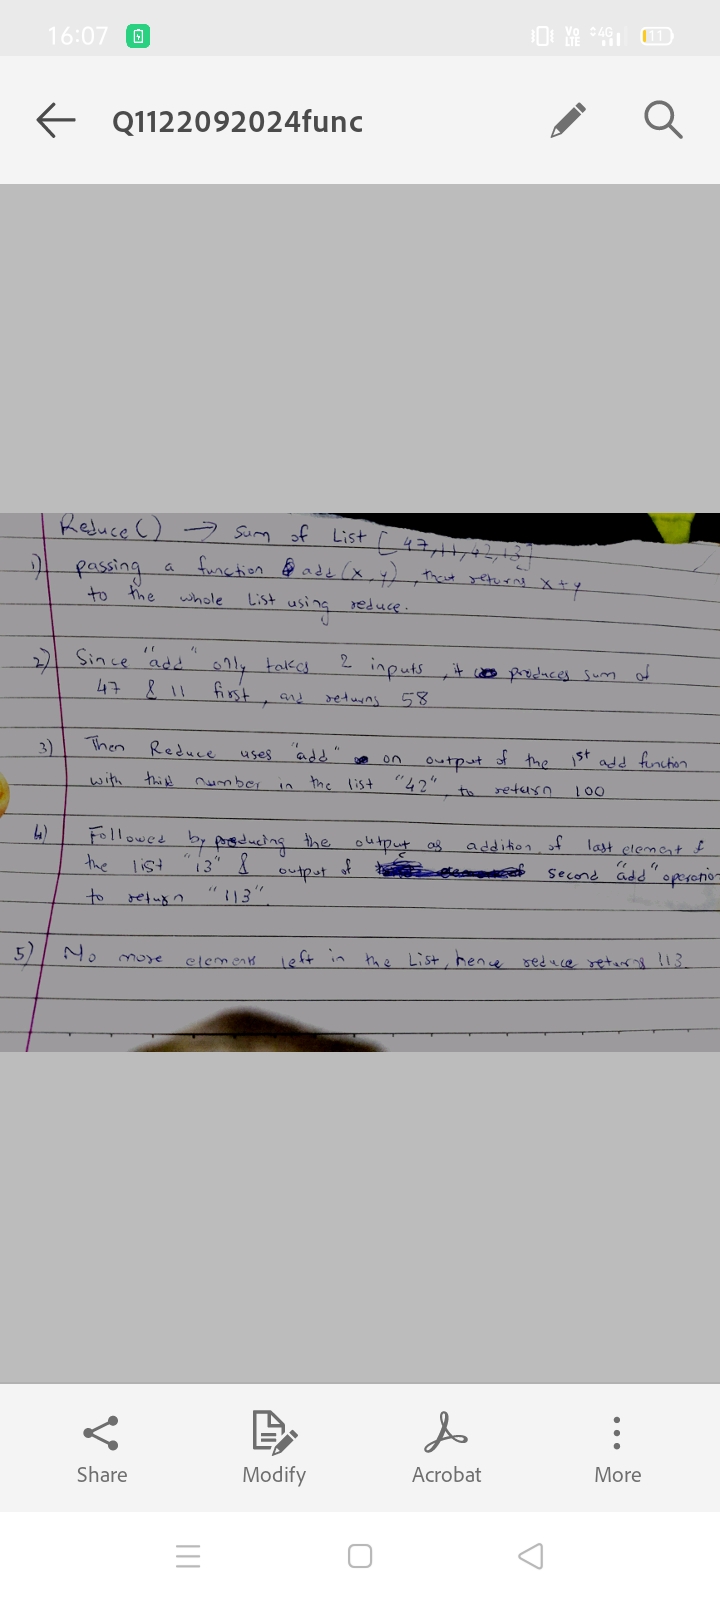 16:07
Vo LTE 4G 11
Q1122092024func
Reduce() → Sum of List [47,11,42,13]
1) passing a function add(x,y), that returns x+y
to the whole List using reduce.
2) Since "add" only takes 2 inputs, it produces sum of
47 & 11 first, and returns 58
3) Then Reduce uses "add" on output of the 1st add function
with third number in the list "42", to return 100
4) Followed by producing the output as addition of last element of
the list "13" & output of second "add" operation
to return "113".
5) No more elements left in the List, hence reduce returns 113.
Share Modify Acrobat More